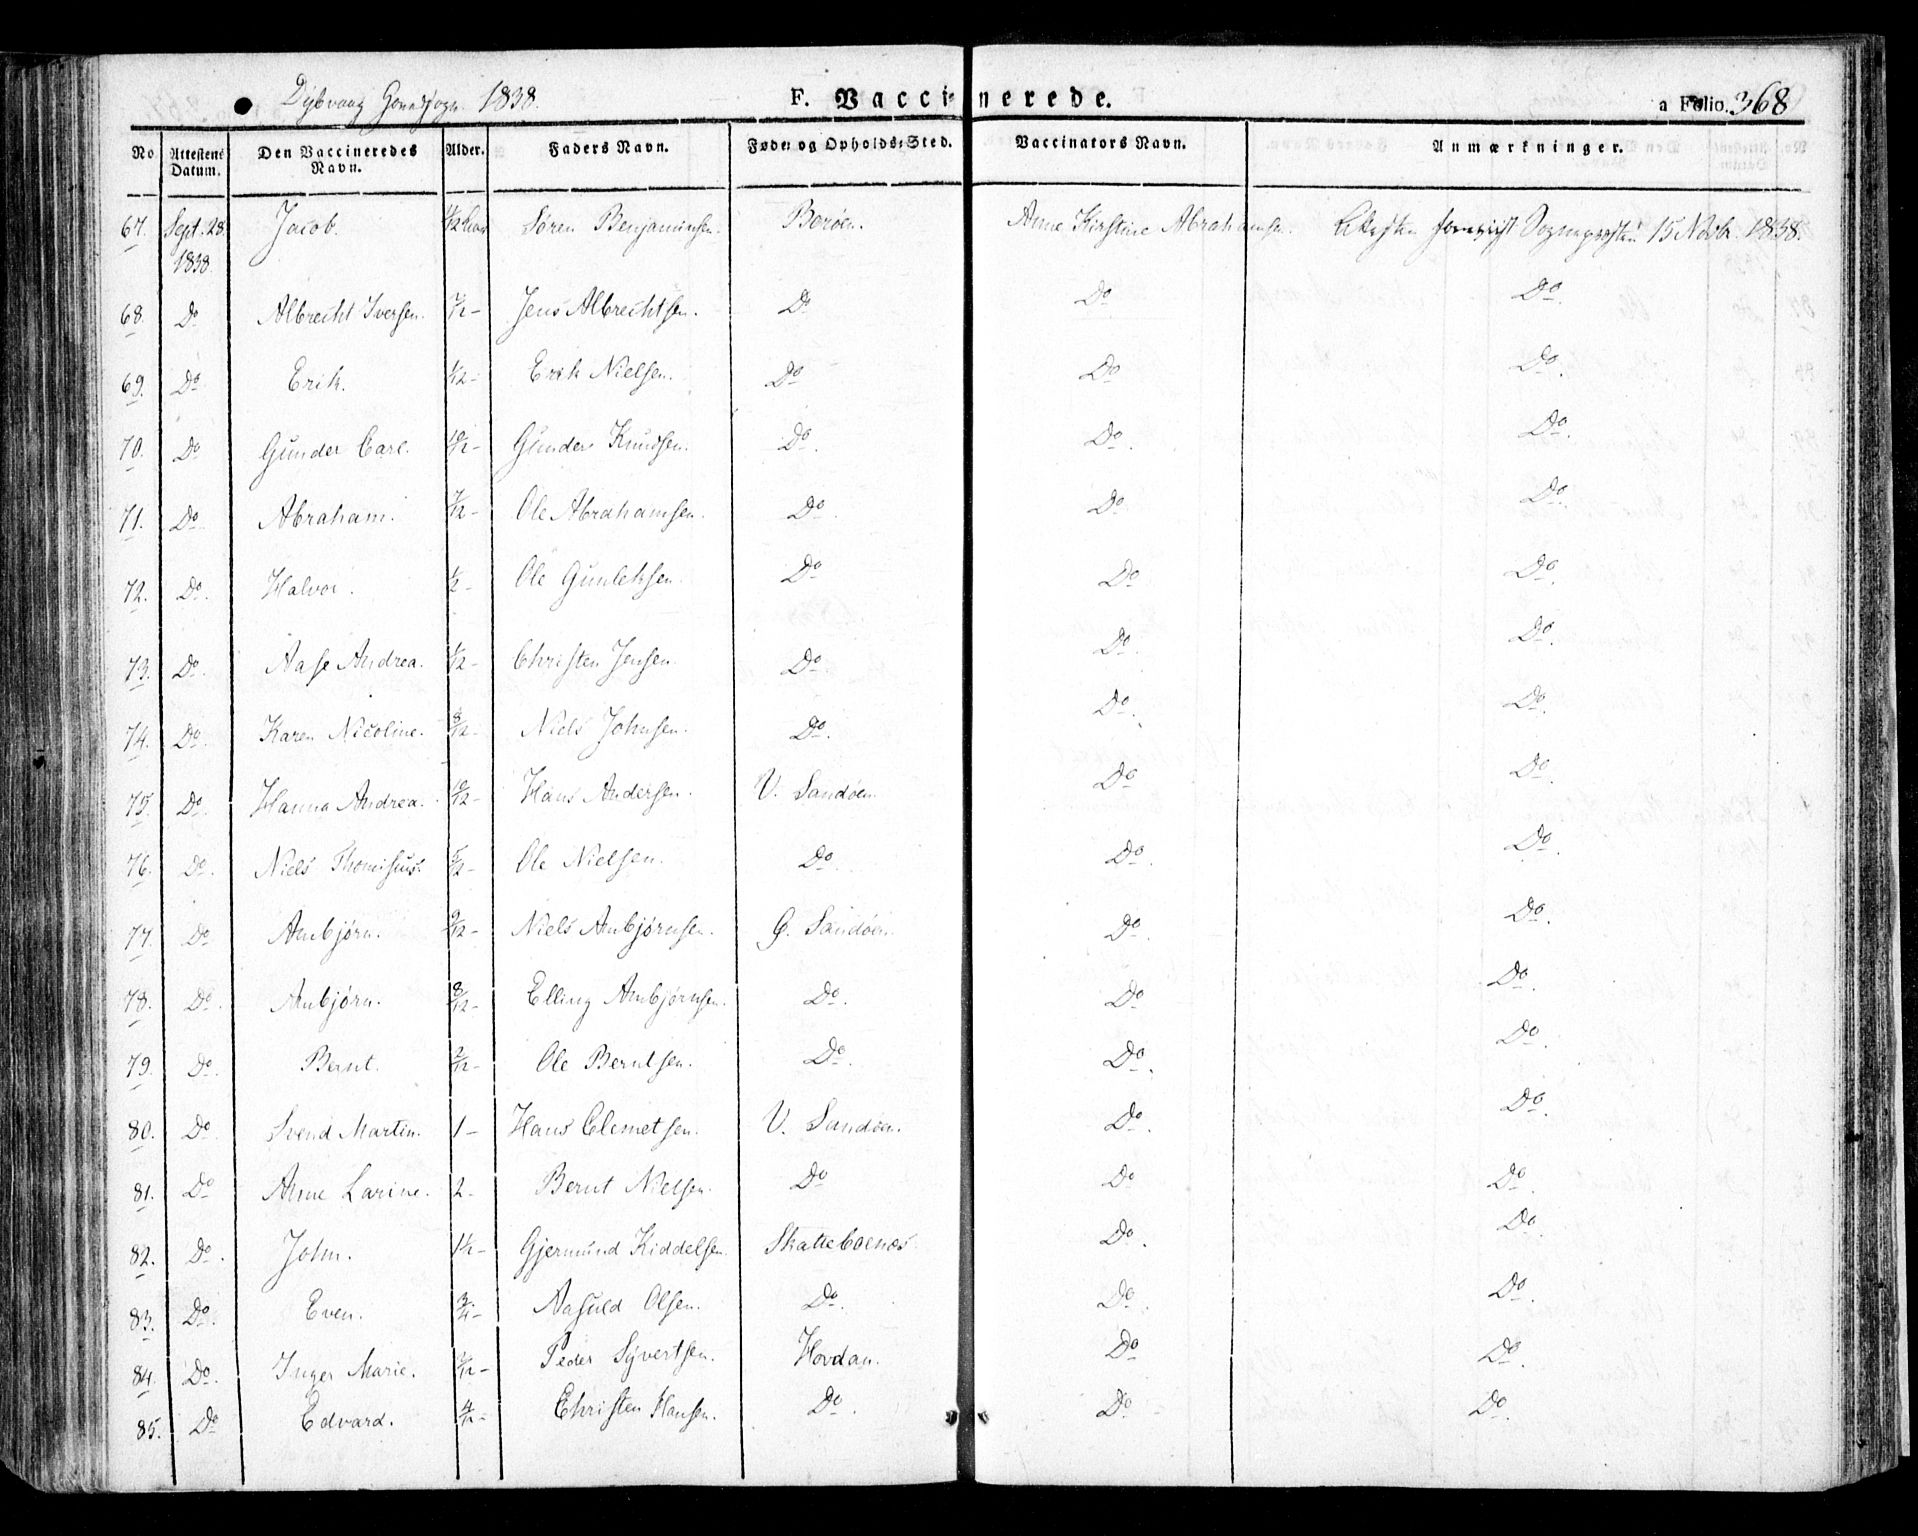 Dybvaag Hovedsogn. 1838. F. Vaccinerede. a Folio. 368
No Attestens Datum. Den Vaccineredes Navn. Alder. Faders Navn. Føde- og Opholds-Sted. Vaccinators Navn. Anmærkninger.
67. Sept. 28 1838. Jacob. Søren Benjaminsen. Borøen. Anne Kirstine Abrahamsen. Attesten Sognepresten 15 Novbr. 1838.
68. Do Albrecht Iversen. 7/12 - Jens Albrechtsen. Do Do Do.
69. Do Erik. Erik Nielsen. Do Do Do.
70. Do Gunder Carl. 10/12 - Gunder Knudsen. Do. Do. Do.
71. Do Abraham. 7/12 - Ole Abrahamsen. Do. Do Do.
72. Do. Halvor. 1/2 - Ole Gunleksen. Do Do Do.
73. Do. Aase Andrea. 1/2 - Christen Jensen. Do Do. Do.
74. Do. Karen Nicoline. 8/12 - Niels Johnsen. Do. Do. Do.
75. Do Hanna Andrea. 10/12 - Hans Andersen. V. Sandøen. Do Do.
76. Do. Niels Thomesius. 5/12 - Ole Nielsen. Do. Do. Do.
77. Do Anbjørn. 9/12 - Niels Anbjørnsen. G. Sandøen. Do. Do.
78. Do. Anbjørn. 8/12 - Elling Anbjørnsen. Do. Do Do.
79. Do. Bernt. 2/12 - Ole Berntsen. Do. Do. Do.
80. Do. Svend Martin. 1 - Hans Clemetsen. V. Sandøen. Do. Do.
81. Do Anne Larine. 2 - Bernt Nielsen. Do Do Do.
82. Do. John. 1 1/2 - Gjermund Kiddelsen. Skatteboenæs. Do. Do.
83. Do. Even. 3/4 - Aasuld Olsen. Do. Do. Do.
84. Do. Inger Marie. Peder Syvertsen. Hovdan. Do Do.
85. Do Edvard. 4/12 - Christen Hansen. Do. Do Do.